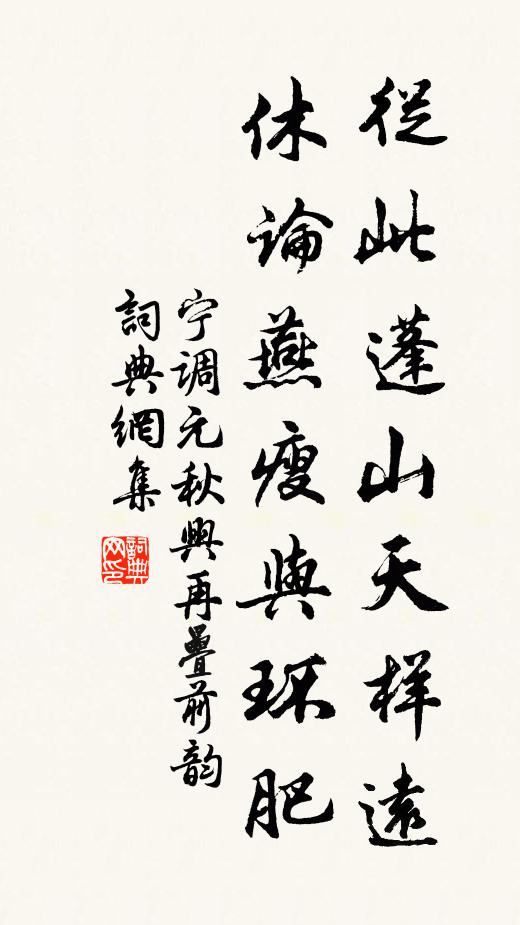 從此蓬山天样遠
休論燕瘦與环肥
宁调元秋興再疊前韵
詞典網集
詞典网印